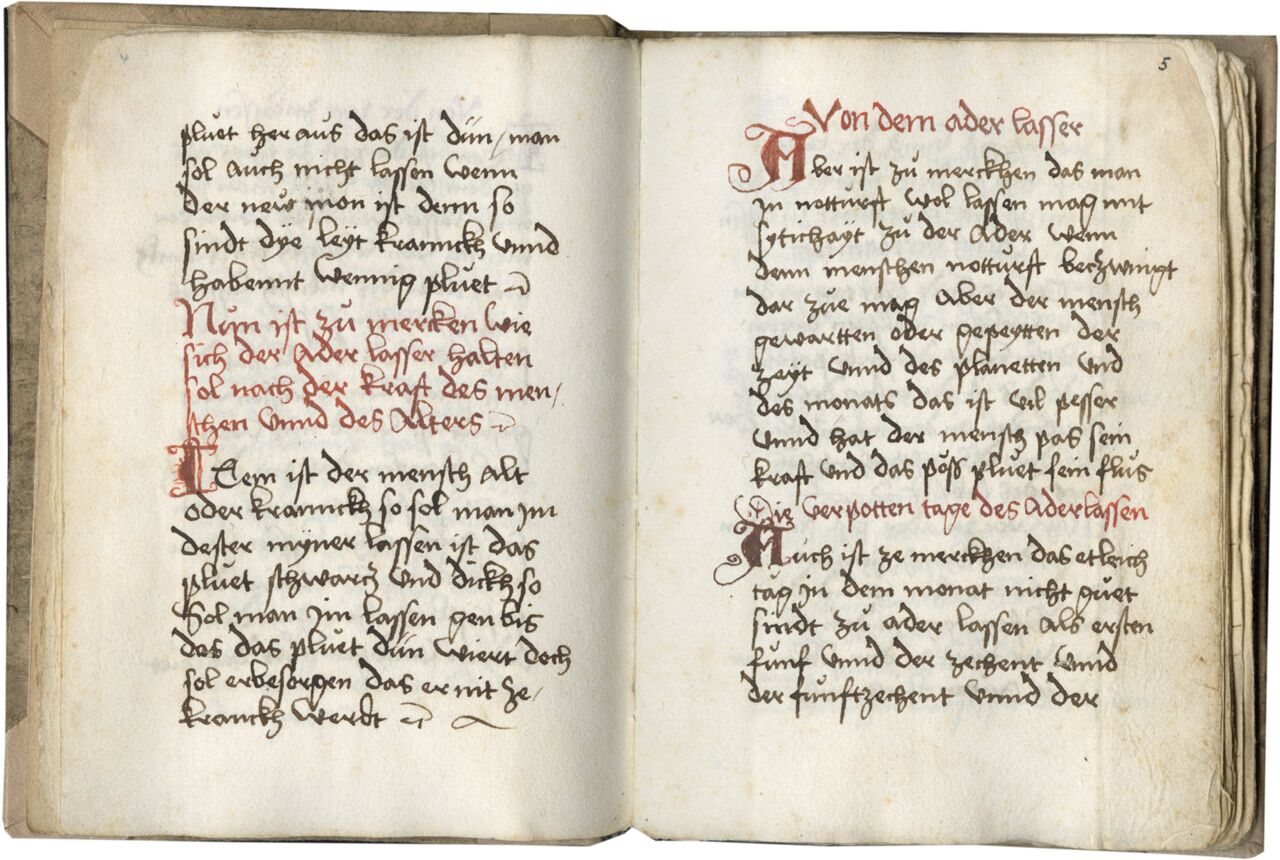 pluet her aus das ist dün / man
sol auch nicht lassen wenn
der new mon ist denn so
sindt dye leyt krannckh vnnd
habennt wennig pluet
Nun ist zu mercken wie
sich der Ader lasser halten
sol nach der kraft des men /
schen vnnd des Alters
Item ist der mensch Alt
oder kranckh so sol man im
dester myner lassen ist das
pluet schwarcz vnd dickh so
Sol man im lassen gen bis
das das pluet dün wiert doch
sol er besorgen das er nit ze /
kranckh werdt
5
Von dem ader lasser
Aber ist zu merckhen das man
in notturft wol lassen mag mit
sytichayt zu der Ader wenn
denn menschen notturft beczwingt
dar zue mag Aber der mensch
gewartten oder gepeytten der
zeyt vnnd des planetten vnd
des monats das ist vil pesser
vnnd hat der mensch pas sein
kraft vnd das pöss pluet sein flus
Die verpotten tage des Aderlassen
Auch ist ze merckhen das etleich
tag in dem monat nicht guet
sindt zu ader lassen Als ersten
funf vnnd der zechent vnnd
der funftzechent vnnd der